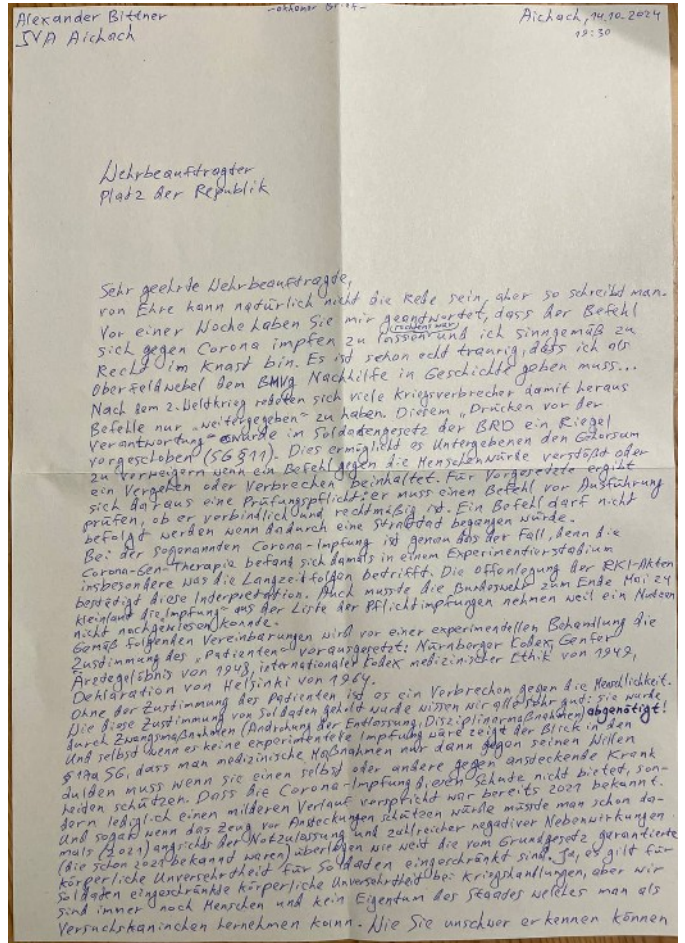 Alexander Bittner
JVA Aichach
-offener Brief-
Aichach, 14.10.2024
18:30
Wehrbeauftragter
Platz der Republik
Sehr geehrte Wehrbeauftragte,
von Ehre kann natürlich nicht die Rede sein, aber so schreibt man.
Vor einer Woche haben Sie mir geantwortet, dass der Befehl
sich gegen Corona impfen zu lassen (rechtens war) und ich sinngemäß zu
Recht im Knast bin. Es ist schon echt traurig, dass ich als
Oberfeldwebel dem BMVg Nachhilfe in Geschichte geben muss...
Nach dem 2. Weltkrieg redeten sich viele Kriegsverbrecher damit heraus
Befehle nur „weitergegeben" zu haben. Diesem „Drücken vor der
Verantwortung" wurde im Soldatengesetz der BRD ein Riegel
vorgeschoben (SG §11). Dies ermöglicht es Untergebenen den Gehorsam
zu verweigern wenn ein Befehl gegen die Menschenwürde verstößt oder
ein Vergehen oder Verbrechen beinhaltet. Für Vorgesetzte ergibt
sich daraus eine Prüfungspflicht: er muss einen Befehl vor Ausführung
prüfen, ob er verbindlich und rechtmäßig ist. Ein Befehl darf nicht
befolgt werden wenn dadurch eine Straftat begangen würde.
Bei der sogenannten Corona-Impfung ist genau das der Fall, denn die
Corona-Gen-Therapie befand sich damals in einem Experimentierstadium
insbesondere was die Langzeitfolgen betrifft. Die Offenlegung der RKI-Akten
bestätigt diese Interpretation. Auch musste die Bundeswehr zum Ende Mai 24
kleinlaut die „Impfung" aus der Liste der Pflichtimpfungen nehmen weil ein Nutzen
nicht nachgewiesen konnte.
Gemäß folgenden Vereinbarungen wird vor einer experimentellen Behandlung die
Zustimmung des „Patienten" vorausgesetzt: Nürnberger Kodex, Genfer
Ärztegelöbnis von 1948, internationaler Kodex medizinischer Ethik von 1949,
Deklaration von Helsinki von 1964.
Ohne der Zustimmung des Patienten ist es ein Verbrechen gegen die Menschlichkeit.
Wie diese Zustimmung von Soldaten geholt wurde wissen wir alle sehr gut: sie wurde
durch Zwangsmaßnahmen (Androhung der Entlassung, Disziplinarmaßnahmen) abgenötigt!
Und selbst wenn es keine experimentele Impfung wäre zeigt der Blick in den
§17a SG, dass man medizinische Maßnahmen nur dann gegen seinen Willen
dulden muss wenn sie einen selbst oder andere gegen ansteckende Krank
heiden schützen. Dass die Corona-Impfung diesen Schutz nicht bietet, son-
dern lediglich einen milderen Verlauf verspricht war bereits 2021 bekannt.
Und sogar wenn das Zeug vor Ansteckungen schützen würde müsste man schon da-
mals (2021) angesichts der Notzulassung und zahlreicher negativer Nebenwirkungen
(die schon 2021 bekannt waren) überlegen wie weit die vom Grundgesetz garantierte
körperliche Unversehrtheit für Soldaten eingeschränkt sind. Ja, es gilt für
Soldaten eingeschränkte körperliche Unversehrtheit bei Kriegshandlungen, aber wir
sind immer noch Menschen und kein Eigentum des Staates welches man als
Versuchskaninchen hernehmen kann. Wie Sie unschwer erkennen können